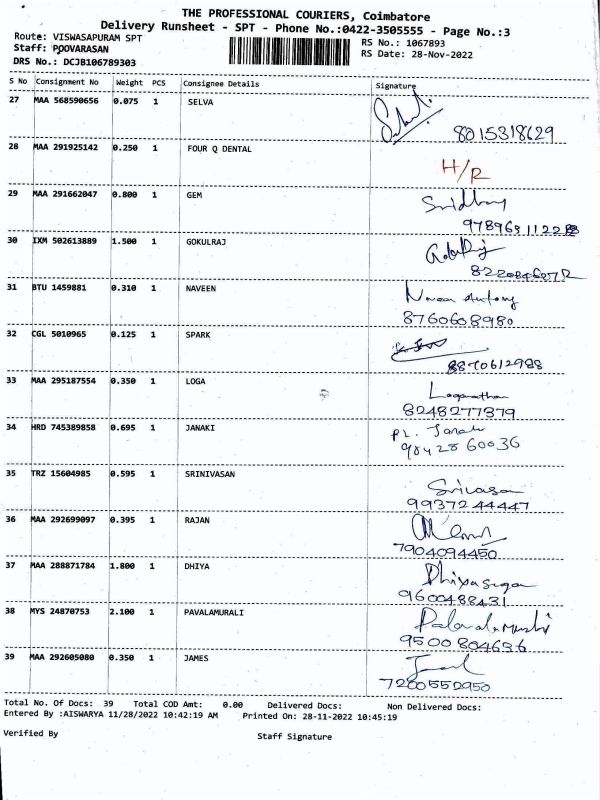 THE PROFESSIONAL COURIERS, Coimbatore
Delivery Runsheet - SPT - Phone No.:0422-3505555 - Page No.:3
Route: VISWASAPURAM SPT
Staff: POOVARASAN
DRS No.: DCJB106789303
RS No.: 1067893
RS Date: 28-Nov-2022
S No Consignment No Weight PCS Consignee Details Signature
27 MAA 568590656 0.075 1 SELVA
8015318629
28 MAA 291925142 0.250 1 FOUR Q DENTAL
H/R
29 MAA 291662047 0.800 1 GEM
Sridhar
30 IXM 502613889 1.500 1 GOKULRAJ
31 BTU 1459881 0.310 1 NAVEEN
Naveen Antony
8760608980
32 CGL 5010965 0.125 1 SPARK
8870612988
33 MAA 295187554 0.350 1 LOGA
Loganathan
8248277379
34 HRD 745389858 0.695 1 JANAKI
PL. Janaki
98428 60036
35 TRZ 15604985 0.595 1 SRINIVASAN
9937244447
36 MAA 292699097 0.395 1 RAJAN
7904094450
37 MAA 288871784 1.800 1 DHIYA
9600488431
38 MYS 24870753 2.100 1 PAVALAMURALI
9500804636
39 MAA 292605080 0.350 1 JAMES
7200552950
Total No. Of Docs: 39 Total COD Amt: 0.00 Delivered Docs: Non Delivered Docs:
Entered By :AISWARYA 11/28/2022 10:42:19 AM Printed On: 28-11-2022 10:45:19
Verified By Staff Signature